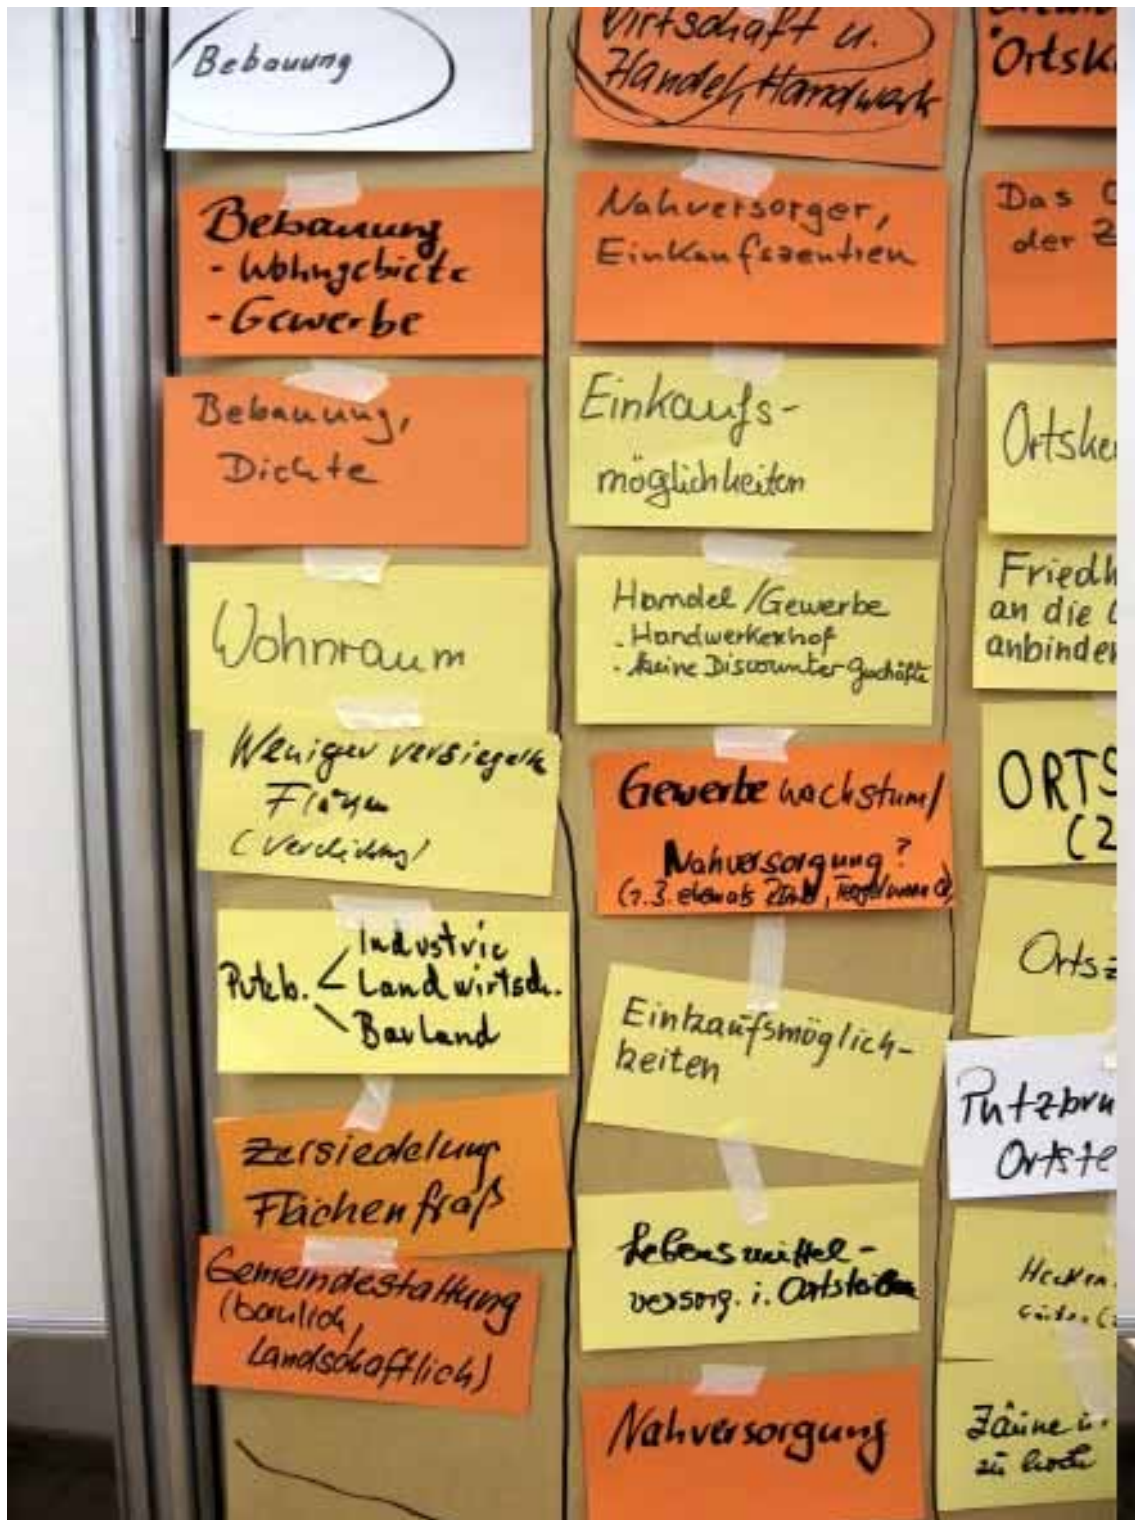 Bebauung
Bebauung
- Wohngebiete
- Gewerbe
Bebauung,
Dichte
Wohnraum
Weniger versiegelte
Flächen
Putzb.
Industrie
Landwirtsch.
Bauland
Zersiedelung
Flächenfraß
Gemeindestaltung
(baulich,
Landschaftlich)
Wirtschaft u.
Handel, Handwerk
Nahversorger,
Einkaufszentren
Einkaufs-
möglichkeiten
Handel/Gewerbe
- Handwerkerhof
- keine Discounter Geschäfte
Gewerbewachstum/
Nahversorgung?
(z.B. ehemals
Einkaufsmöglich-
keiten
Lebensmittel-
versorg. i. Ortsteilen
Nahversorgung
Ortsk
Das
der
Ortske
Friedh
an die
anbinden
ORTS
(2
Orts
Putzbru
Ortste
Hecken
Zäune u.
zu hoch